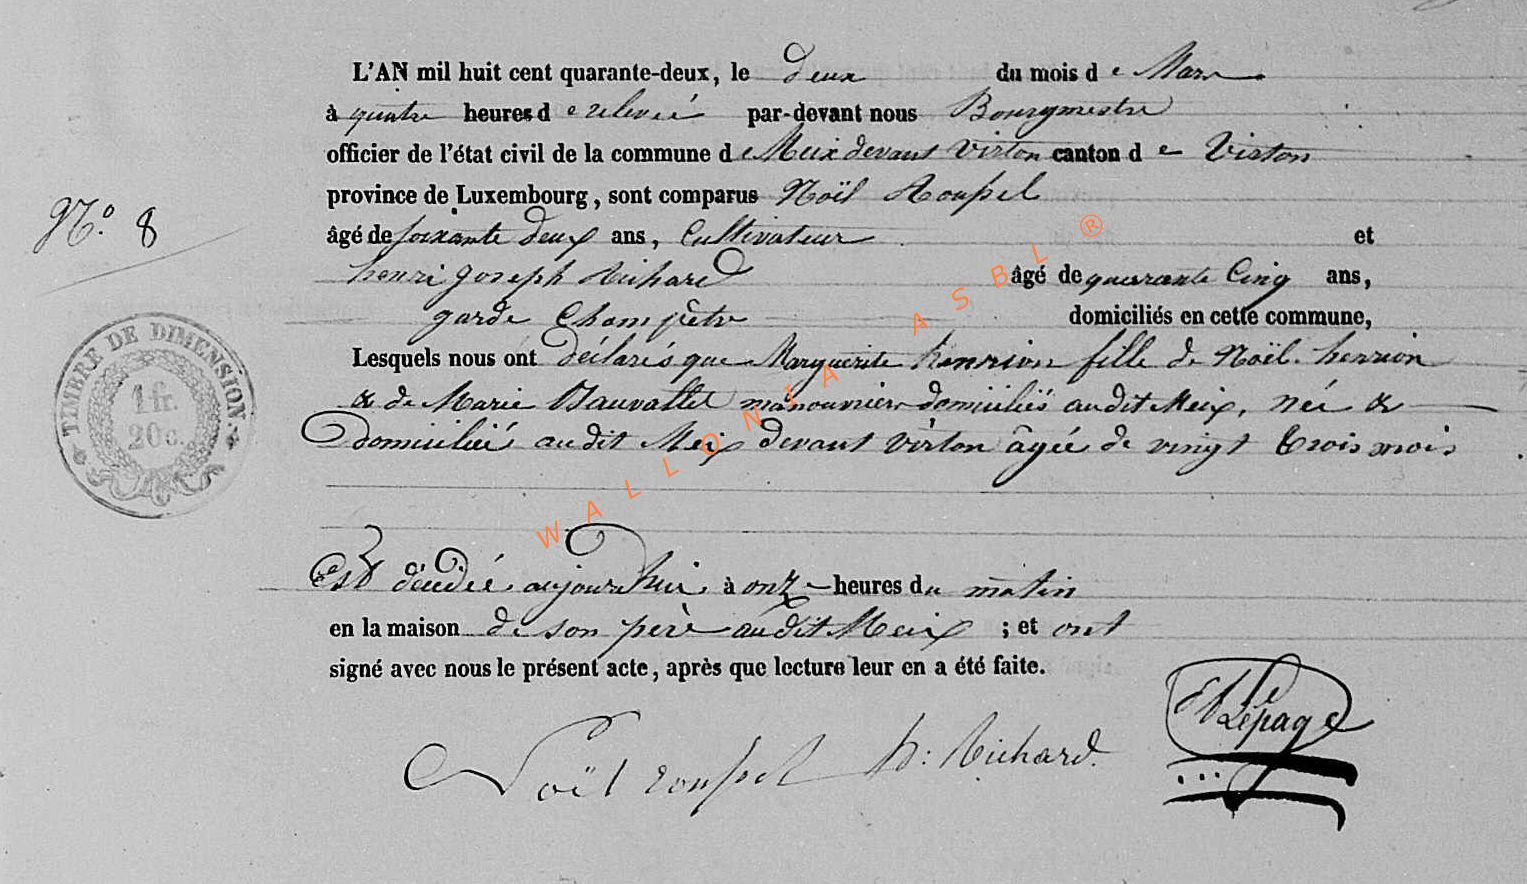 L'AN mil huit cent quarante-deux, le deux du mois de Mars
à quatre heures de relevée par-devant nous Bourgmestre
officier de l'état civil de la commune de Meix devant Virton canton de Virton
province de Luxembourg, sont comparus Noël Roussel
N.° 8
âgé de soixante deux ans, Cultivateur et
henri joseph Richard âgé de quarante Cinq ans,
garde Champêtre domiciliés en cette commune,
Lesquels nous ont déclarés que Marguerite henrion fille de Noël henrion
& de Marie Bauvallet manouvriers domiciliés audit Meix, née &
domiciliée audit Meix devant virton âgée de vingt trois mois
TIMBRE DE DIMENSION
1 fr.
20 c.
Est décédée aujourd'hui à onze heures du matin
en la maison de son père audit Meix ; et ont
signé avec nous le présent acte, après que lecture leur en a été faite.
Noël roussel h: Richard
Lepage
WALLONIA ASBL ®